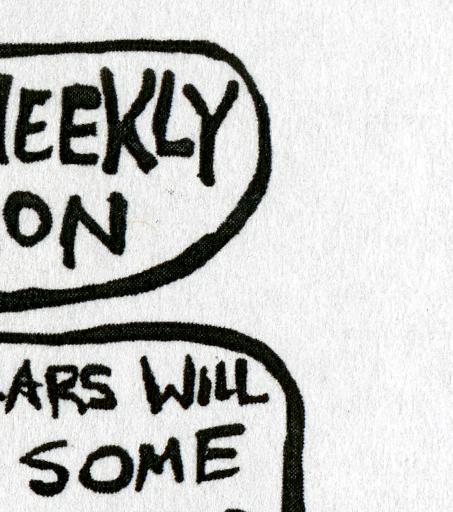 WEEKLY
ON
ARS WILL
SOME